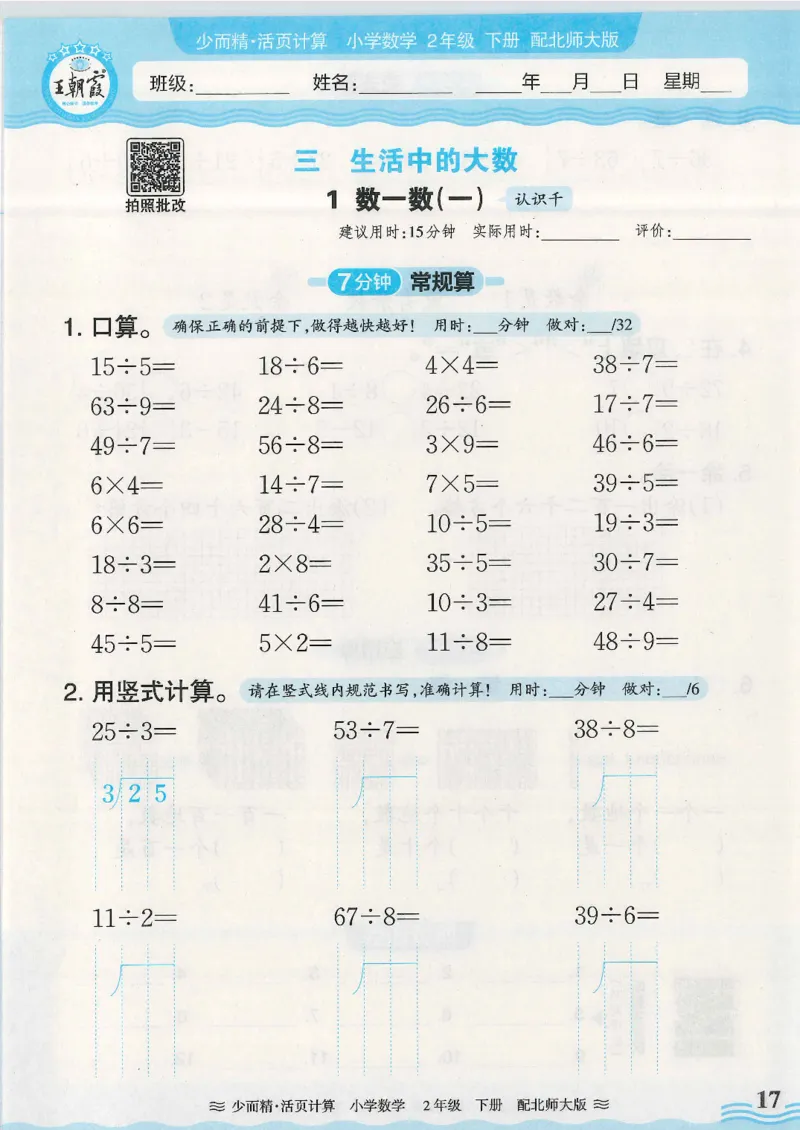 少而精·活页计算 小学数学 2年级 下册 配北师大版
王朝霞
班级: 姓名: 年 月 日 星期
三 生活中的大数
拍照批改
1 数一数(一) 认识千
建议用时:15分钟 实际用时: 评价:
7分钟 常规算
1. 口算。 确保正确的前提下,做得越快越好! 用时: 分钟 做对: /32
15÷5= 18÷6= 4×4= 38÷7=
63÷9= 24÷8= 26÷6= 17÷7=
49÷7= 56÷8= 3×9= 46÷6=
6×4= 14÷7= 7×5= 39÷5=
6×6= 28÷4= 10÷5= 19÷3=
18÷3= 2×8= 35÷5= 30÷7=
8÷8= 41÷6= 10÷3= 27÷4=
45÷5= 5×2= 11÷8= 48÷9=
2. 用竖式计算。 请在竖式线内规范书写,准确计算! 用时: 分钟 做对: /6
25÷3= 53÷7= 38÷8=
3 2 5
11÷2= 67÷8= 39÷6=
少而精·活页计算 小学数学 2年级 下册 配北师大版
17